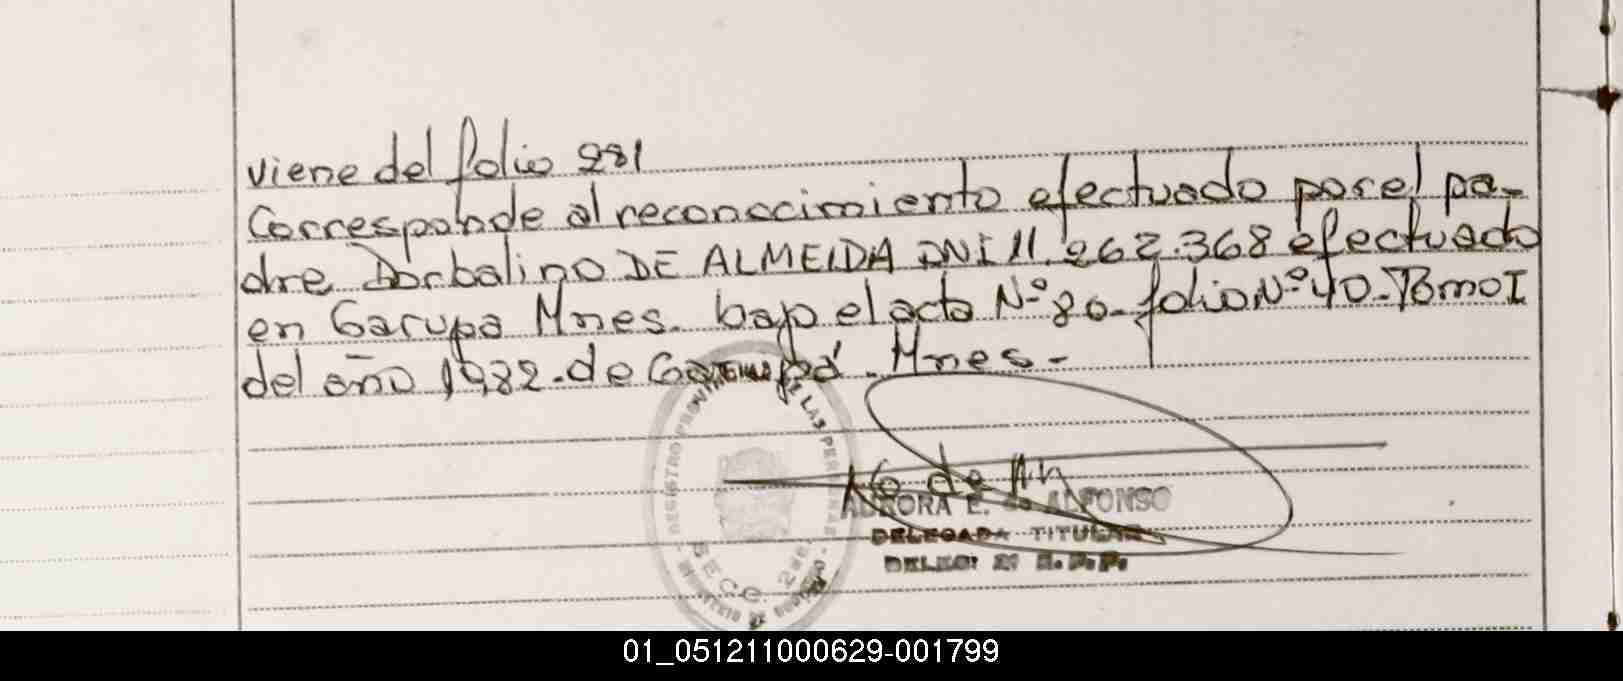 viene del folio 281
Corresponde al reconocimiento efectuado por el pa-
dre Dorbalino DE ALMEIDA DNI 11.262.368 efectuado
en Garupa Mnes. bajo el acta Nº 80 - folio Nº 40 - Tomo I
del año 1982 - de Garupá - Mnes -
REGISTRO PROVINCIAL DE LAS PERSONAS
SECC. 2da.
MINISTERIO DE GOBIERNO
AURORA E. de ALFONSO
DELEGADA TITULAR
DELEG. R.P.P.
01_051211000629-001799